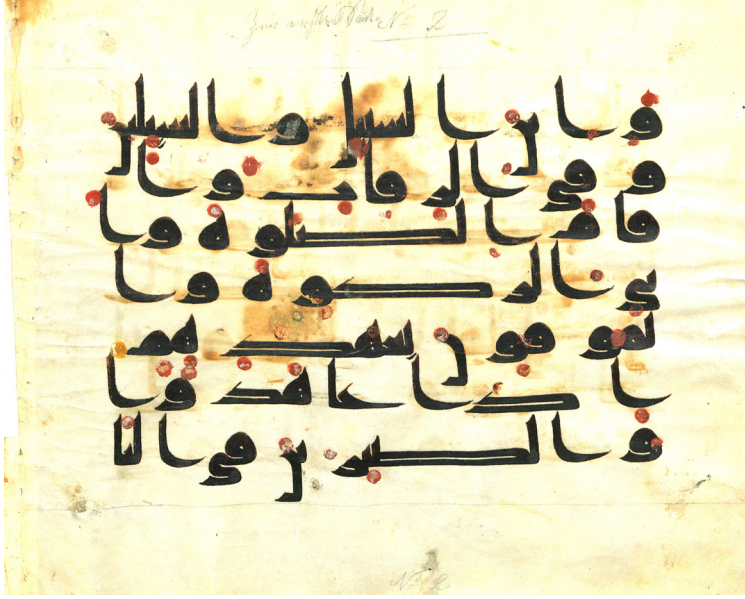 No 2
وابن السبيل والسلين
وفي الرقاب وا
قام الصلوة وا
تى الزكوة وا
لموفون بعهدهم
اذا عاهدوا
والصبرين في البا
No 2